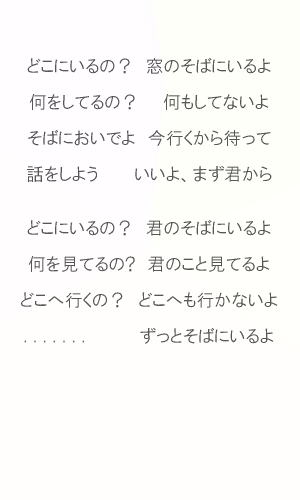 どこにいるの? 窓のそばにいるよ
何をしてるの? 何もしてないよ
そばにおいでよ 今行くから待って
話をしよう いいよ、まず君から
どこにいるの? 君のそばにいるよ
何を見てるの? 君のこと見てるよ
どこへ行くの? どこへも行かないよ
....... ずっとそばにいるよ